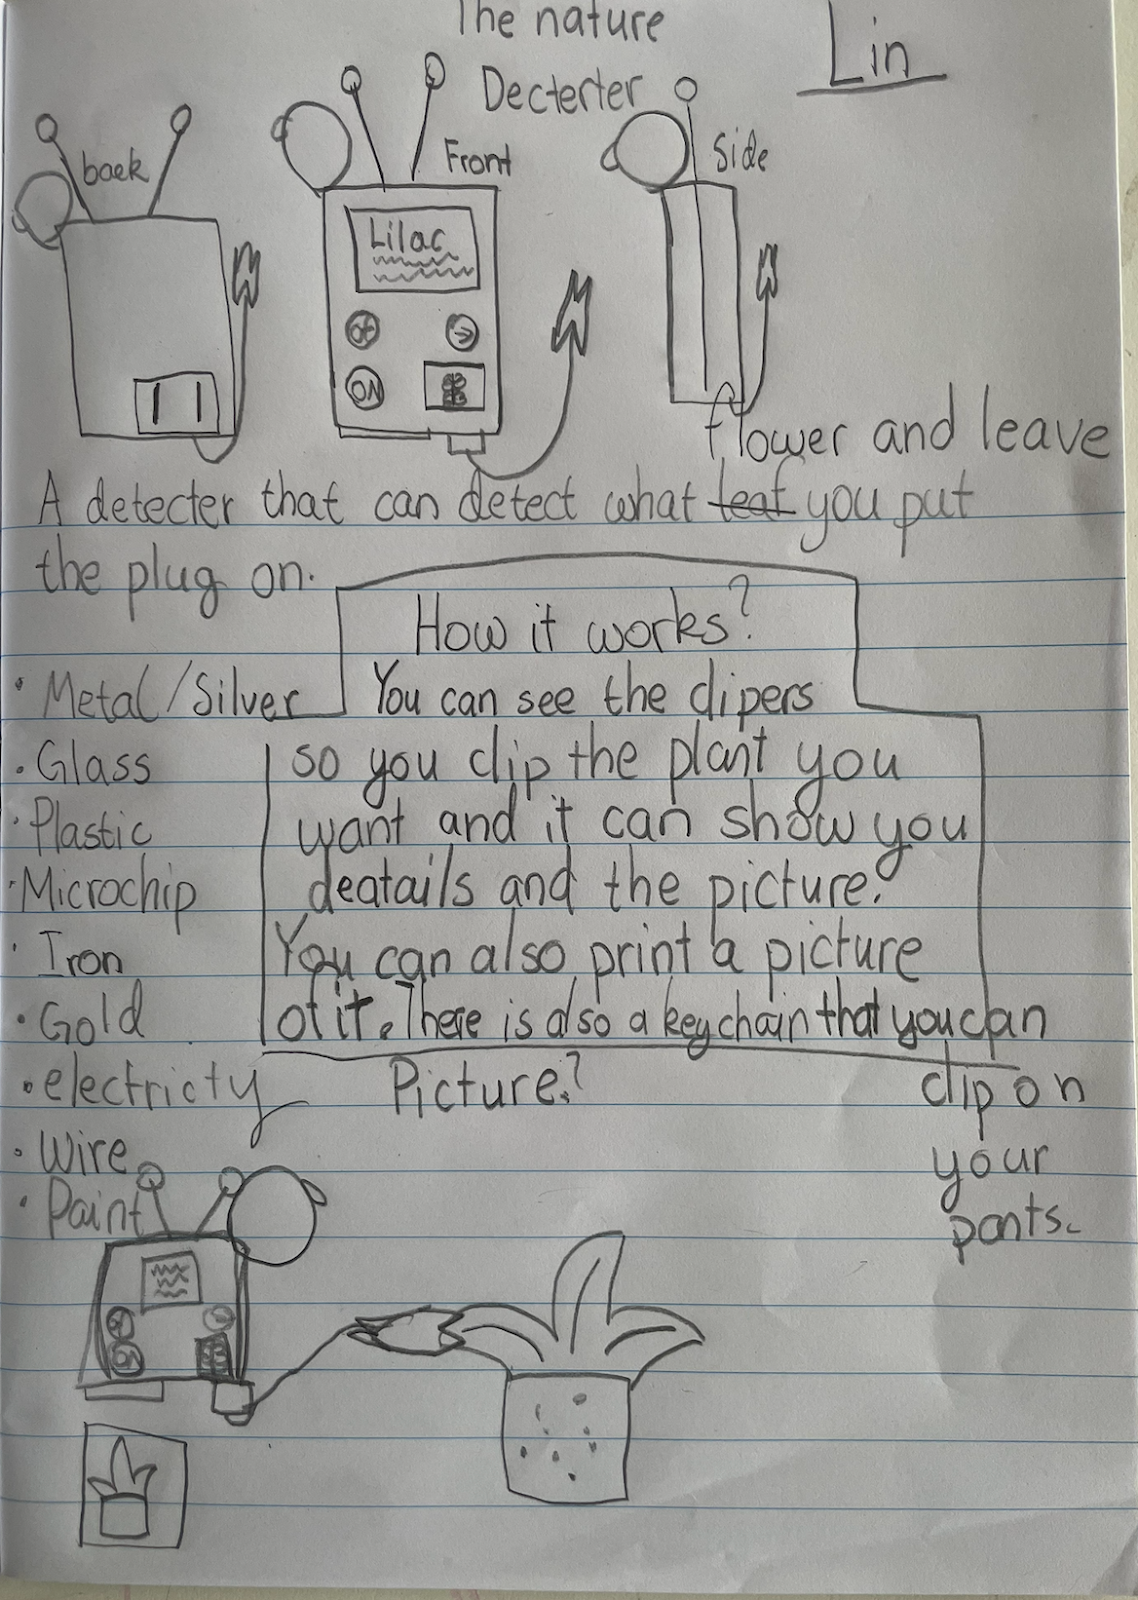 The nature
Decterter
Lin
back
Front
Side
Lilac
ON
flower and leave
A detecter that can detect what leaf you put
the plug on.
How it works?
You can see the clipers
so you clip the plant you
want and it can show you
deatails and the picture.
You can also print a picture
of it. There is also a keychain that you can
clip on
your
pants.
· Metal/Silver
· Glass
· Plastic
· Microchip
· Iron
· Gold
· electricty
· Wire
· Paint
Picture?
ON